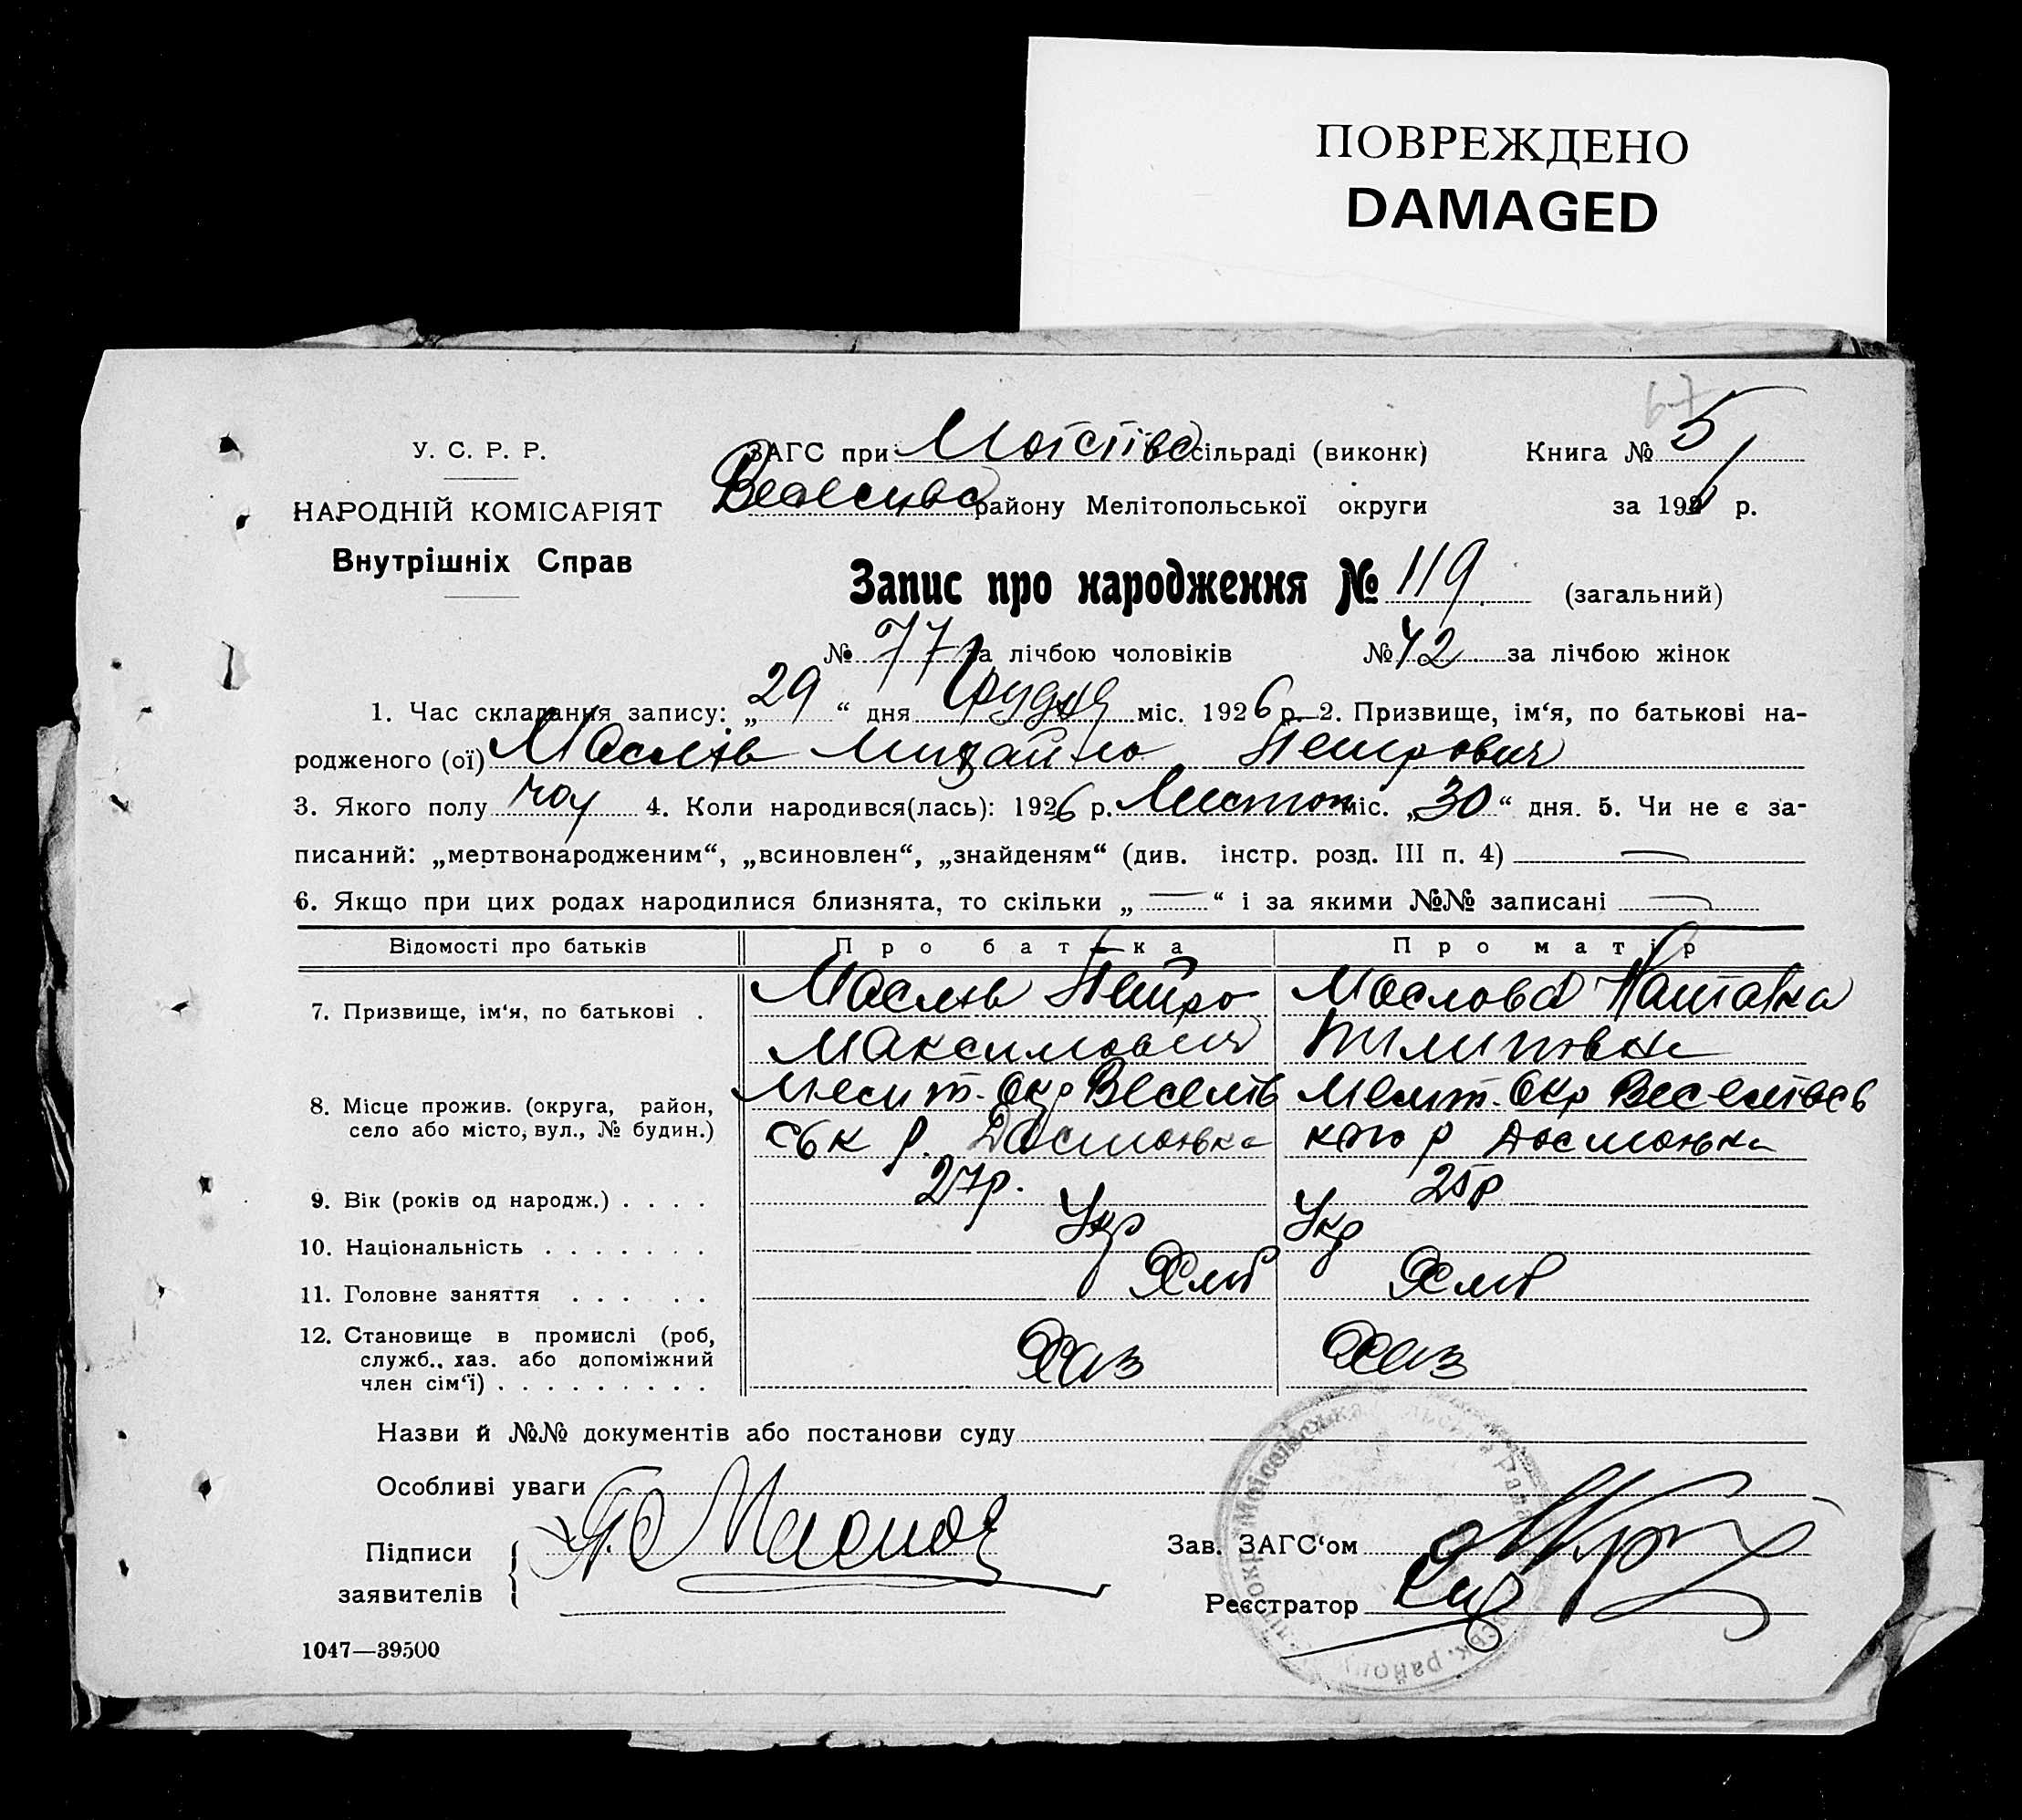 ПОВРЕЖДЕНО
DAMAGED
67
У. С. Р. Р.
НАРОДНІЙ КОМІСАРІЯТ
Внутрішніх Справ
ЗАГС при сільраді (виконк)
Книга № 5
району Мелітопольської округи
за 192 р.
Запис про народження № 119 (загальний)
№ 77 за лічбою чоловіків № 42 за лічбою жінок
1. Час складання запису: „29“ дня Грудня міс. 1926 р. 2. Призвище, ім‘я, по батькові на-
родженого (ої) Маслів Михайло Петрович
3. Якого полу чол 4. Коли народився(лась): 1926 р. Листоп міс. „30“ дня. 5. Чи не є за-
писаний: „мертвонародженим“, „всиновлен“, „знайденям“ (див. інстр. розд. III п. 4) —
6. Якщо при цих родах народилися близнята, то скільки „—“ і за якими №№ записані —
Відомості про батьків Про батька Про матір
7. Призвище, ім‘я, по батькові . Маслів Петро Маслова Наталка
Максимович
8. Місце прожив. (округа, район, Мелит. Окр Веселів Мелит. Окр Веселівсь
село або місто, вул., № будин.) ськ р. кого р
9. Вік (років од народж.) . . . . 27р. 25р
10. Національність . . . . . . . Укр Укр
11. Головне заняття . . . . . . Хліб Хліб
12. Становище в промислі (роб, Хаз Хаз
служб., хаз. або допоміжний
член сім‘ї) . . . . . . . . .
Назви й №№ документів або постанови суду
Особливі уваги
Підписи
заявителів
Зав. ЗАГС‘ом
Реєстратор
1047—39500